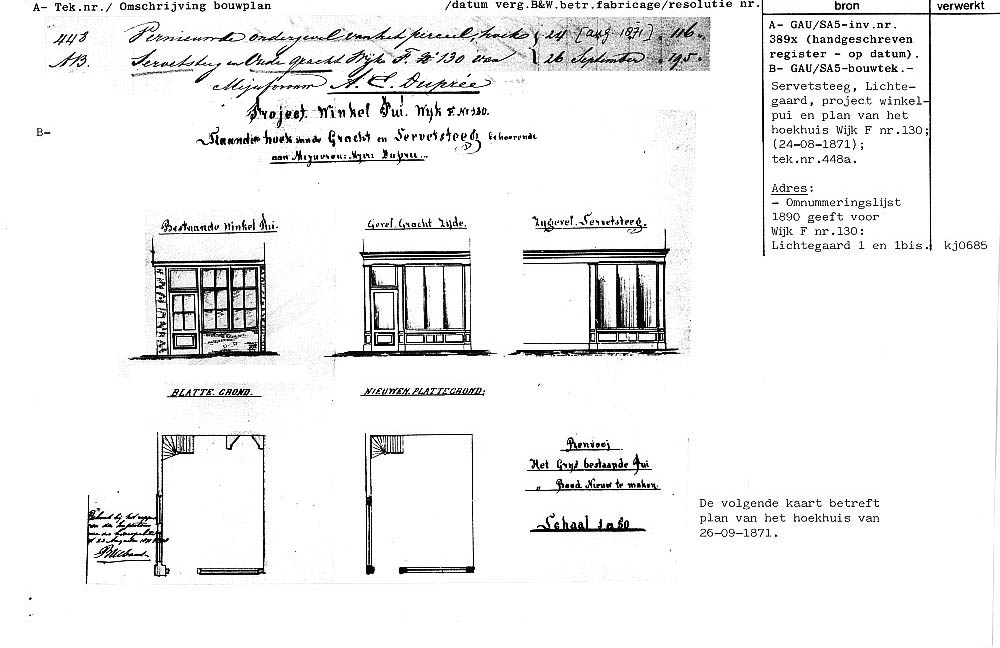 A- Tek.nr./ Omschrijving bouwplan /datum verg.B&W.betr.fabricage/resolutie nr.
bron
verwerkt
448 ondergevel van het perceel, hoek 24 [aug 1871] . 116.
AB. Servetsteeg en Oude gracht Wijk F. No 130 van 26 September . 195.
Mejufvrouw A. C. Duprée
B-
Project Winkel Pui. Wijk F. No 130.
Staande hoek van de Gracht en Servetsteeg behoorende
aan Mejuvrou: Dupree
Bestaande Winkel Pui.
Gevel. Gracht Zijde.
Zygevel. Servetsteeg.
PLATTE. GROND.
NIEUWEN. PLATTEGROND:
Renvooj
Het Grijs bestaande Pui
„ Rood Nieuw te maken.
Schaal 1 a 50
A- GAU/SA5-inv.nr.
389x (handgeschreven
register - op datum).
B- GAU/SA5-bouwtek.-
Servetsteeg, Lichte-
gaard, project winkel-
pui en plan van het
hoekhuis Wijk F nr.130;
(24-08-1871);
tek.nr.448a.
Adres:
- Omnummeringslijst
1890 geeft voor
Wijk F nr.130:
Lichtegaard 1 en 1bis.
kj0685
De volgende kaart betreft
plan van het hoekhuis van
26-09-1871.